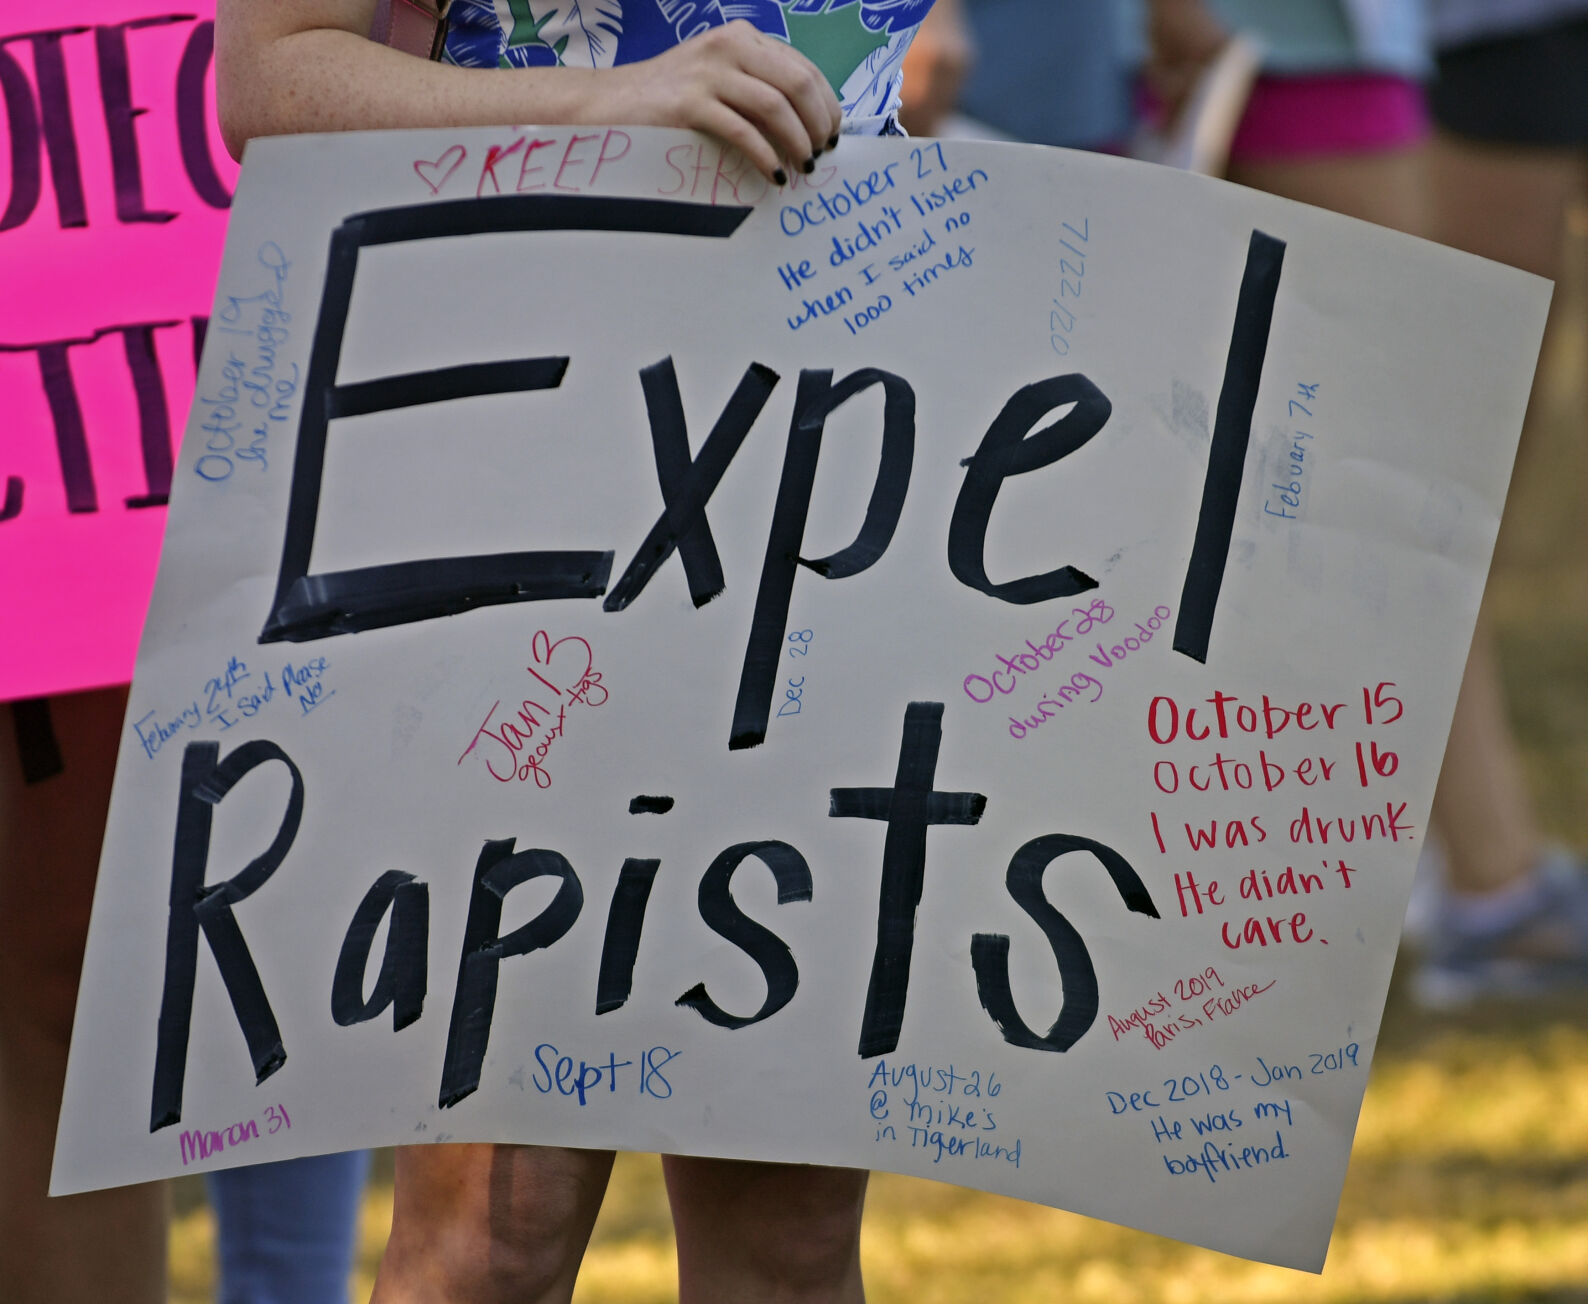 ♡ KEEP STRONG
October 27
He didn't listen
when I said no
1000 times
7/22/20
October 19
he drugged
me
Expel
Febuary 7th
February 24th
I Said Please
No
Jan 13
geaux tigs
Dec 28
October 28
during Voodoo
Rapists
October 15
October 16
I was drunk.
He didn't
care.
August 2019
Paris, France
Sept 18
August 26
@ Mike's
in Tigerland
Dec 2018 - Jan 2019
He was my
boyfriend.
March 31